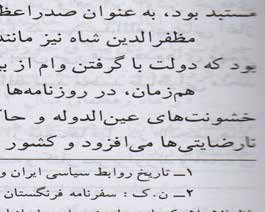 مستبد بود، به عنوان صدراعظ
مظفرالدین شاه نیز مانند
بود که دولت با گرفتن وام از بی
همزمان، در روزنامه‌ها
خشونت‌های عین‌الدوله و حا
نارضایتی‌ها می‌افزود و کشور
۱ــ تاریخ روابط سیاسی ایران و
۲ــ ن.ک : سفرنامه فرنگستان